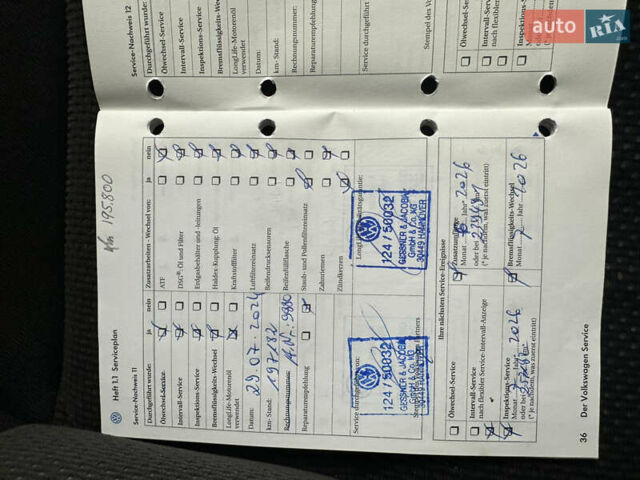 Service-Nachweis 12
Durchgeführt wurde:
Ölwechsel-Service
Intervall-Service
Inspektions-Service
Bremsflüssigkeits-We
LongLife-Motorenöl
verwendet
Datum:
km-Stand:
Rechnungsnummer:
Reparaturempfehlung
Service durchgeführt
Stempel des Vo
Ölwechsel-Service
Intervall-Service
nach flexibler
Inspektions-
Monat
auto RIA.com
Heft 1.1 Serviceplan
195.800
Service-Nachweis 11
Durchgeführt wurde:
ja
nein
Ölwechsel-Service
Intervall-Service
Inspektions-Service
Bremsflüssigkeits-Wechsel
LongLife-Motorenöl
verwendet
Datum:
29.07.2024
km-Stand:
197182
Rechnungsnummer:
Reparaturempfehlung
Service durchgeführt:
124 / 50032
GESSNER & JACOBI
GmbH & Co. KG
Zusatzarbeiten - Wechsel von:
ja
nein
ATF
DSG®: Öl und Filter
Erdgasbehälter und -leitungen
Haldex-Kupplung: Öl
Kraftstofffilter
Luftfiltereinsatz
Bedienfilterflasche
Staub- und Pollenfiltereinsatz
Zahnriemen
Zündkerzen
124 / 50032
GESSNER & JACOBI
GmbH & Co. KG
30449 HANNOVER
Ihre nächsten Service-Ereignisse
Ölwechsel-Service
Intervall-Service
nach flexibler Service-Intervall-Anzeige
Inspektions-Service
Monat
Jahr*
2026
oder bei
km*
(* je nachdem, was zuerst eintritt)
Monat
Jahr*
2026
oder bei
km*
(* je nachdem, was zuerst eintritt)
Bremsflüssigkeits-Wechsel
Monat 7 Jahr 2026
36
Der Volkswagen Service